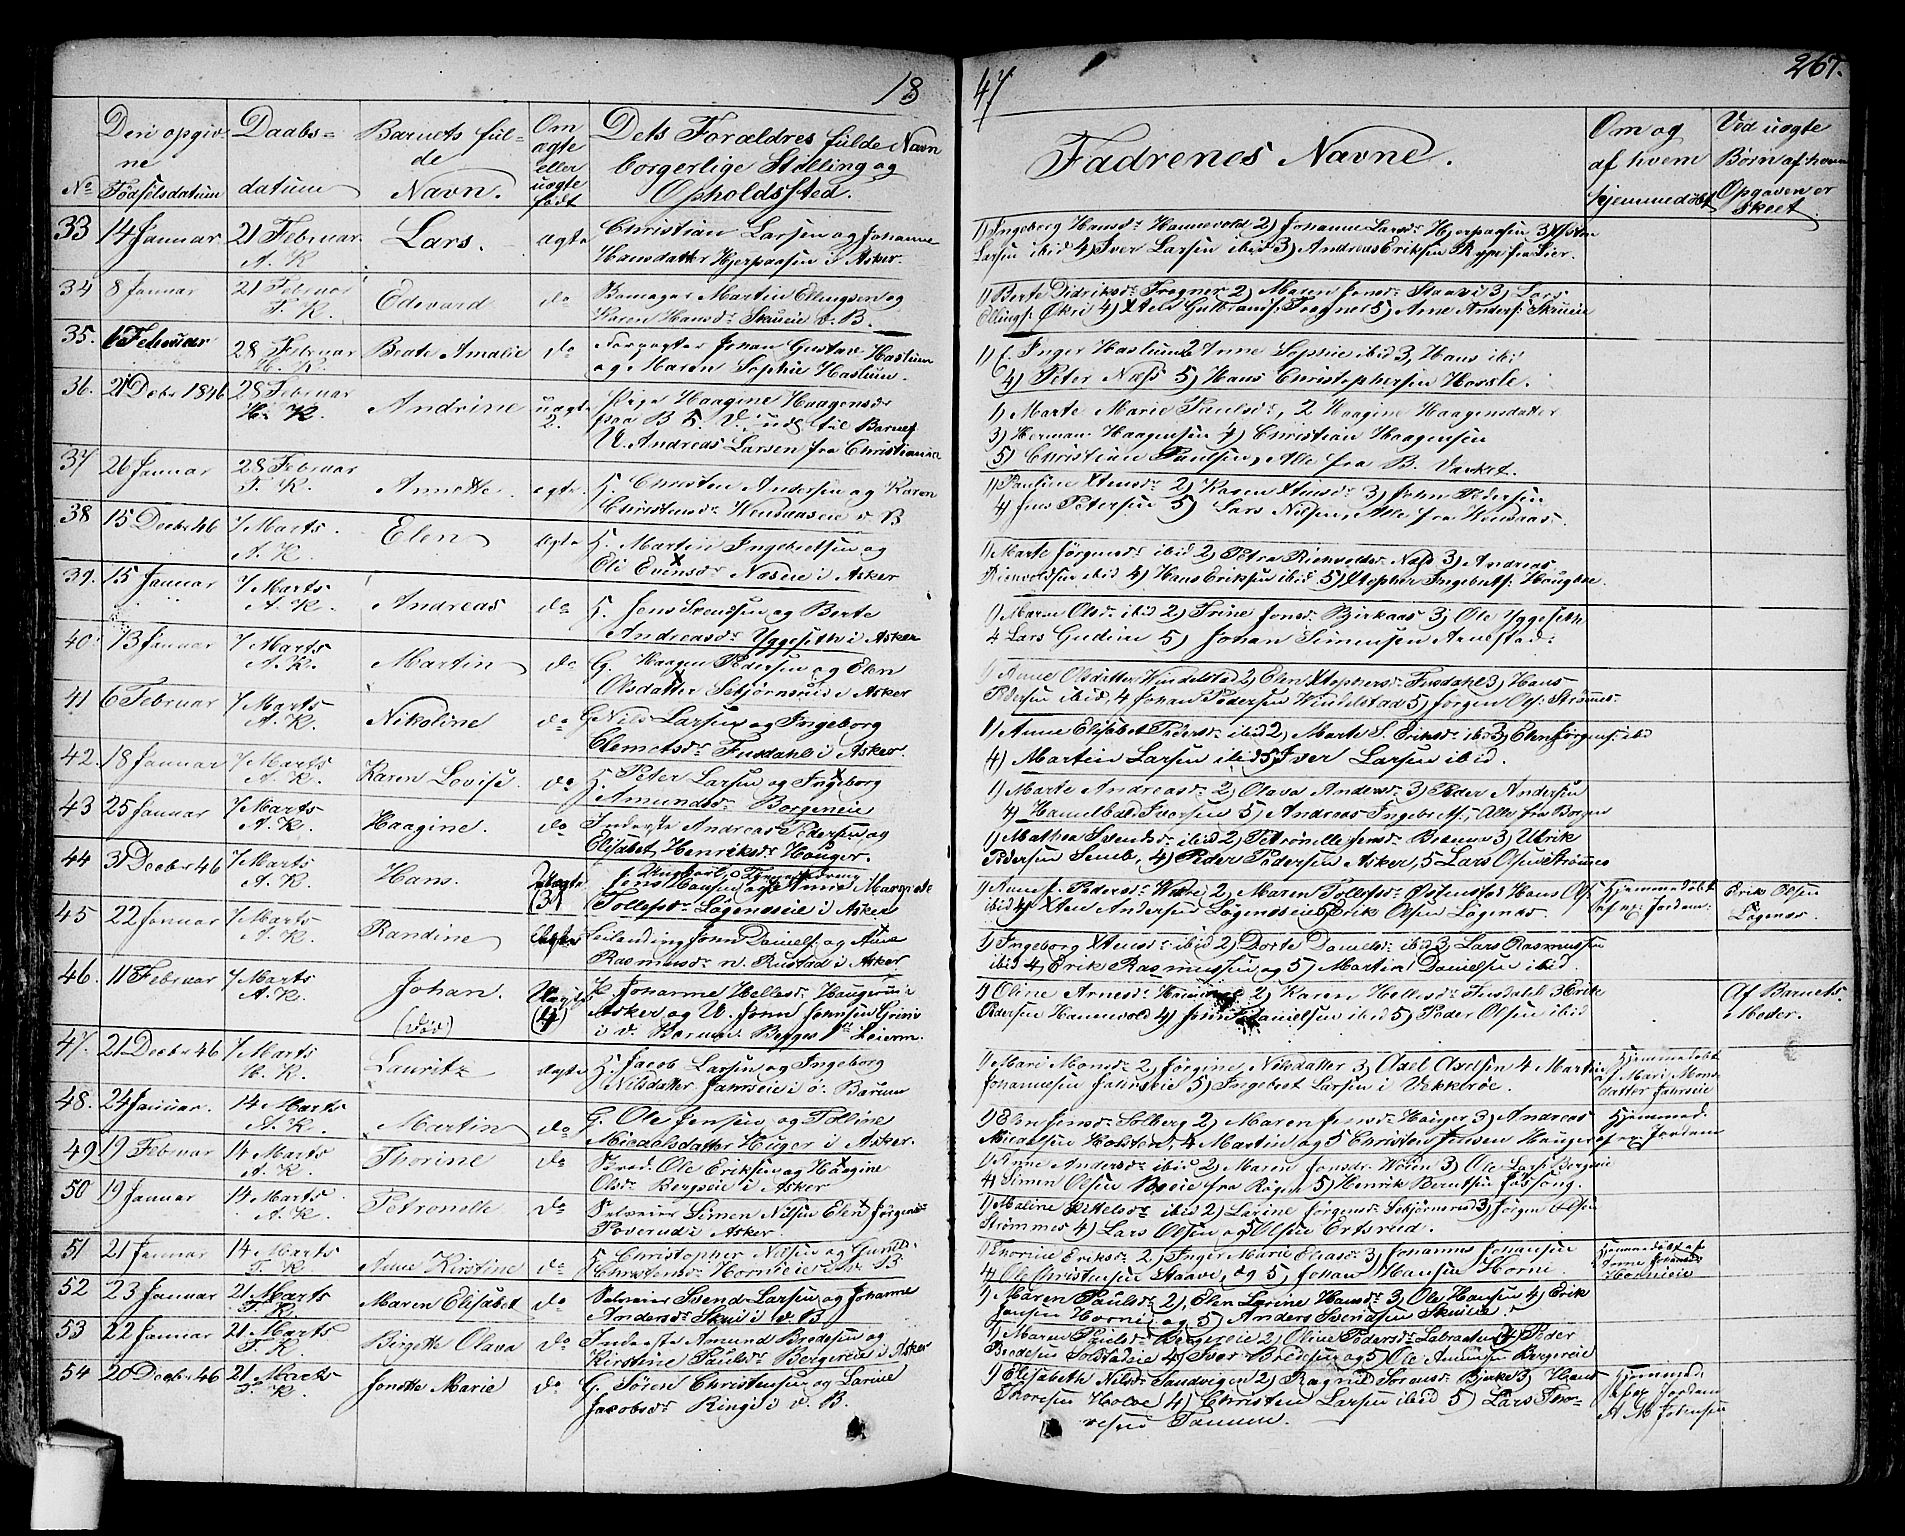 18
47
267.
No
Den opgiv-
ne
Fødselsdatum
Daabs-
datum
Barnets ful-
de
Navn.
Om
ægte
eller
uægte
født
Dets Forældres fulde Navn
borgerlige Stilling og
Opholdssted.
Fadrenes Navne.
Om og
af hvem
hjemmedøbt
Ved uægte
Børn af hvem
Opgaven er
skeet
33 14 Januar 21 Februar A. K. Lars. ægte
Christian Larsen og Johanne
Hansdatter Hjerpaasen i Asker.
1) Ingeborg Hansdr Hannevold 2) Johanne Larsdr Hjerpaasen 3)
Larsen ibid 4) Iver Larsen ibid 3) Andreas Eriksen Rype fra Lier.
34 8 Januar 21 Februar T. K. Edvard do
Martin Ellingsen og
Karen Hansdr Skueie v. B.
1) Berte Didriksdr Frogner 2) Maren Jonsdr Staavi 3) Lars
Ellings. Økri 4) Xten Gulbrands. Frogner 5) Arne Anders. Skueie
35. 6 Februar 28 Februar H. K. Beate Amalie do
Forpagter Johan Gustav Haslum
og Maren Sophie Haslum.
1) f. Inger Haslum 2 Anne Sophie ibid 3, Hans ibi
4) Peter Næss 5) Hans Christophersen Hosle.
36. 21 Decbr 1846 28 Februar H. K. Andrine uægte 2.
Pige Haagine Haagensdr
paa B. V. til Barnef
U. Andreas Larsen fra Christiania
1) Marte Marie Paulsdr, 2 Haagine Haagensdatter
3) Herman Haagensen 4) Christian Haagensen
5) Christian Paulsen, Alle fra B. Værket.
37 26 Januar 28 Februar T. K. Annette. ægte
H. Christen Andersen og Karen
Christensdr v. B
1) Pauline Xtensdr 2) Karen Xtensdr 3) John Pedersen
4) Jens Petersen 5) Lars Nilsen, Alle fra
38 15 Decbr 46 7 Marts. A. K. Elen ægte
H. Martin Ingebretsen og
Oli Evensdr Næseie i Asker
1) Marte Jørgensdr ibid 2) Petra Rinvoldsdr Næss 3) Andreas
Rinvoldsen ibid 4) Hans Eriksen ibid. 5) Xstopher Ingebrets.
39. 15 Januar 7 Marts A. K. Andreas do
H. Jens Svendsen og Berte
Andreasdr Yggeseth i Asker
1) Maren Olsdr ibid 2) Trine Jonsdr Birkaas 3) Ole Yggeseth
4 Lars Gudim 5) Johan Simensen Arnestad.
40. 13 Januar 7 Marts A. K. Martin do
G. Haagen Pedersen og Elen
Olsdatter Sebjørnsrud i Asker
1) Anne Olsdatter Vindelstad 2, Elen Xtophersdr Fusdahl 3) Hans
Pedersen ibid, 4 Johan Pedersen Vindelstad 5) Jørgen Ols. Strømmes.
41 6 Februar 7 Marts A. K. Nikoline do
G. Nils Larsen og Ingeborg
Clemetsdr Fusdahl i Asker.
1) Anne Elisabet Pedersdr ibid 2, Marte S. Eriksdr ibid 3, Elen Jørgens. ibid
4) Martin Larsen ibid 5) Iver Larsen ibid.
42. 18 Januar 7 Marts A. K. Karen Lovise. do
H. Peter Larsen og Ingeborg
Amundsdr Borgeneie
1) Marte Andreasdr 2) Olava Andersdr 3) Peder Andersen
4) Iversen 5) Andreas Ingebrets. Alle fra Borgen
43 25 Januar 7 Marts A. K. Haagine. do
Inderste Andreas Pedersen og
Elisabet Henriksdr Hauger.
1) Mathea Svendsdr ibid 2) Petronelle Jensdr 3) Ulrik
Pedersen Semb, 4) Peder Pedersen Asker, 5 Lars Olsen Strømmes
44 31 Decbr 46 7 Marts A. K. Hans. Uægte (3)
Jens Hansen og Anne Margrete
Tollefsdr Løgenæseie i Asker
1) Anne f. Pedersdr 2, Maren Tollefsdr 3 Hans Ols.
ibid 4) Xten Andersen Løgenæseie 5) Erik Olsen Løgenæs.
Hjemmedøbt
af ex. Jordem.
Erik Olsen
Løgenæs.
45 22 Januar 7 Marts A. K. Randine Ægte
Leilænding John Daniels. og Anne
Rasmusdr n. Rustad i Asker.
1) Ingeborg Xtensdr ibid 2) Dorte Danielsdr ibid 3, Lars Rasmussen
ibid 4, Erik Rasmussen og 5) Martin Danielsen ibid.
46. 11 Februar 7 Marts A. K. Johan. (død) Uægte (4)
P. Johanne Hellesdr Haugerud i
Asker og U. John Johnsen
i v. Bærum. Begges 1ste Leierm.
1) Oline Arnesdr 2) Karen Hellesdr Fusdahl 3 Erik
Pedersen Hannevold 4) Danielsen ibid 5) Peder Olsen ibid
Af Barnets
Moder.
47. 21 Decbr 46 7 Marts H. K. Lauritz ægte
H. Jacob Larsen og Ingeborg
Nilsdatter Jarseie i ø. Bærum
1) Mari Monsdr 2, Jørgine Nilsdatter 3) Axel Axelsen 4 Martin
Johannesen Jarseie 5) Ingebret Larsen i Vækkerøe.
Hjemmedøbt
af Mari Mons-
datter Jahrseie
48. 24 Januar. 14 Marts A. K. Martin do
G. Ole Jensen og Tolline
Micaelsdatter Huger i Asker.
1) Elen Jensdr Solberg 2) Maren Jensdr Hauger 3) Andreas
Micaelsen Holsten, 4 Martin og 5 Christen Jensen Hauger
Hjemmed.
af ex. Jordem
49 19 Februar 14 Marts A. K. Thorine do
Ole Eriksen og Haagine
Olsdr Bergseie i Asker
1) Anne Andersdr ibid 2) Maren Jonsdr 3) Ole Lars. Bergseie
4) Simen Olsen fra Røgen 5) Henrik Berntsen
50 19 Januar 14 Marts A. K. Petronelle do
Selveier Simen Nilsen Elen Jørgensdr
Poverud i Asker.
1) Maline Kittelsdr ibid 2) Lerine Jørgensdr Sebjørnsrud 3) Jørgen Olsen
Strømmes 4) Lars Olsen og 5 Olsen Ertsrud.
51 21 Januar 14 Marts T. K. Anne Kirstine do
H. Christopher Næsen og
Christensdr Hornieie i v. B
1) Thorine Eriksdr 2, Inger Marie Eliasdr 3) Johannes Johansen
4 Ole Christensen Staavi, og 5, Johan Hansen Horni.
Hjemmedøbt af
Hornieie
52 23 Januar 21 Marts T. K. Maren Elisabet do
Selveier Svend Larsen og Johanne
Andersdr Skui i v. B
1) Maren Paulsdr 2, Elen Larine Hansdr 3, Ole Hansen 4) Erik
Jansen Horni og 5) Anders Svendsen Skuieie.
53 22 Januar 21 Marts T. K. Birgitte Olava do
Inderste Amund Bredesen og
Kirstine Paulsdr Bergereie i Asker
1) Maren Paulsdr Bergereie 2) Oline Pedersdr 3) Peder
Bredesen Solstadeie 4) Iver Bredesen og 5) Ole Amundsen Bergereie
54 20 Decbr 46 21 Marts T. K. Jonette Marie do
G. Søren Christensen og Larine
Jacobsdr Ringi i v. B.
1) Elisabeth Nilsdr Sandvigen 2) Ragnild Sørensdr Bjerke 3) Hans
Thoresen Holve 4) Christen Larsen ibid 5) Lars Tho-
resen Tanum.
Hjemmed.
af ex Jordem